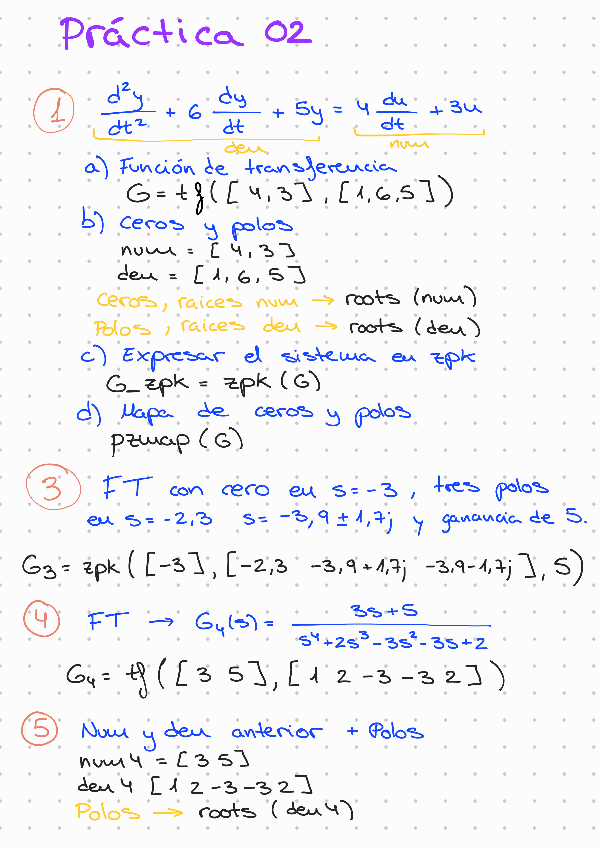 Práctica 02
1 d²y/dt² + 6 dy/dt + 5y = 4 du/dt + 3u
den num
a) Función de transferencia
G = tf([4,3], [1,6,5])
b) Ceros y polos
num = [4,3]
den = [1,6,5]
Ceros, raices num → roots (num)
Polos, raices den → roots (den)
c) Expresar el sistema en zpk
G_zpk = zpk (G)
d) Mapa de ceros y polos
pzmap (G)
3 FT con cero en s=-3, tres polos
en s=-2,3 s=-3,9±1,7j y ganancia de 5.
G3 = zpk ([-3], [-2,3 -3,9+1,7j -3,9-1,7j], 5)
4 FT → G4(s) = 3s+5 / s⁴+2s³-3s²-3s+2
G4 = tf ([3 5], [1 2 -3 -3 2])
5 Num y den anterior + Polos
num4 = [3 5]
den4 [1 2 -3 -3 2]
Polos → roots (den4)